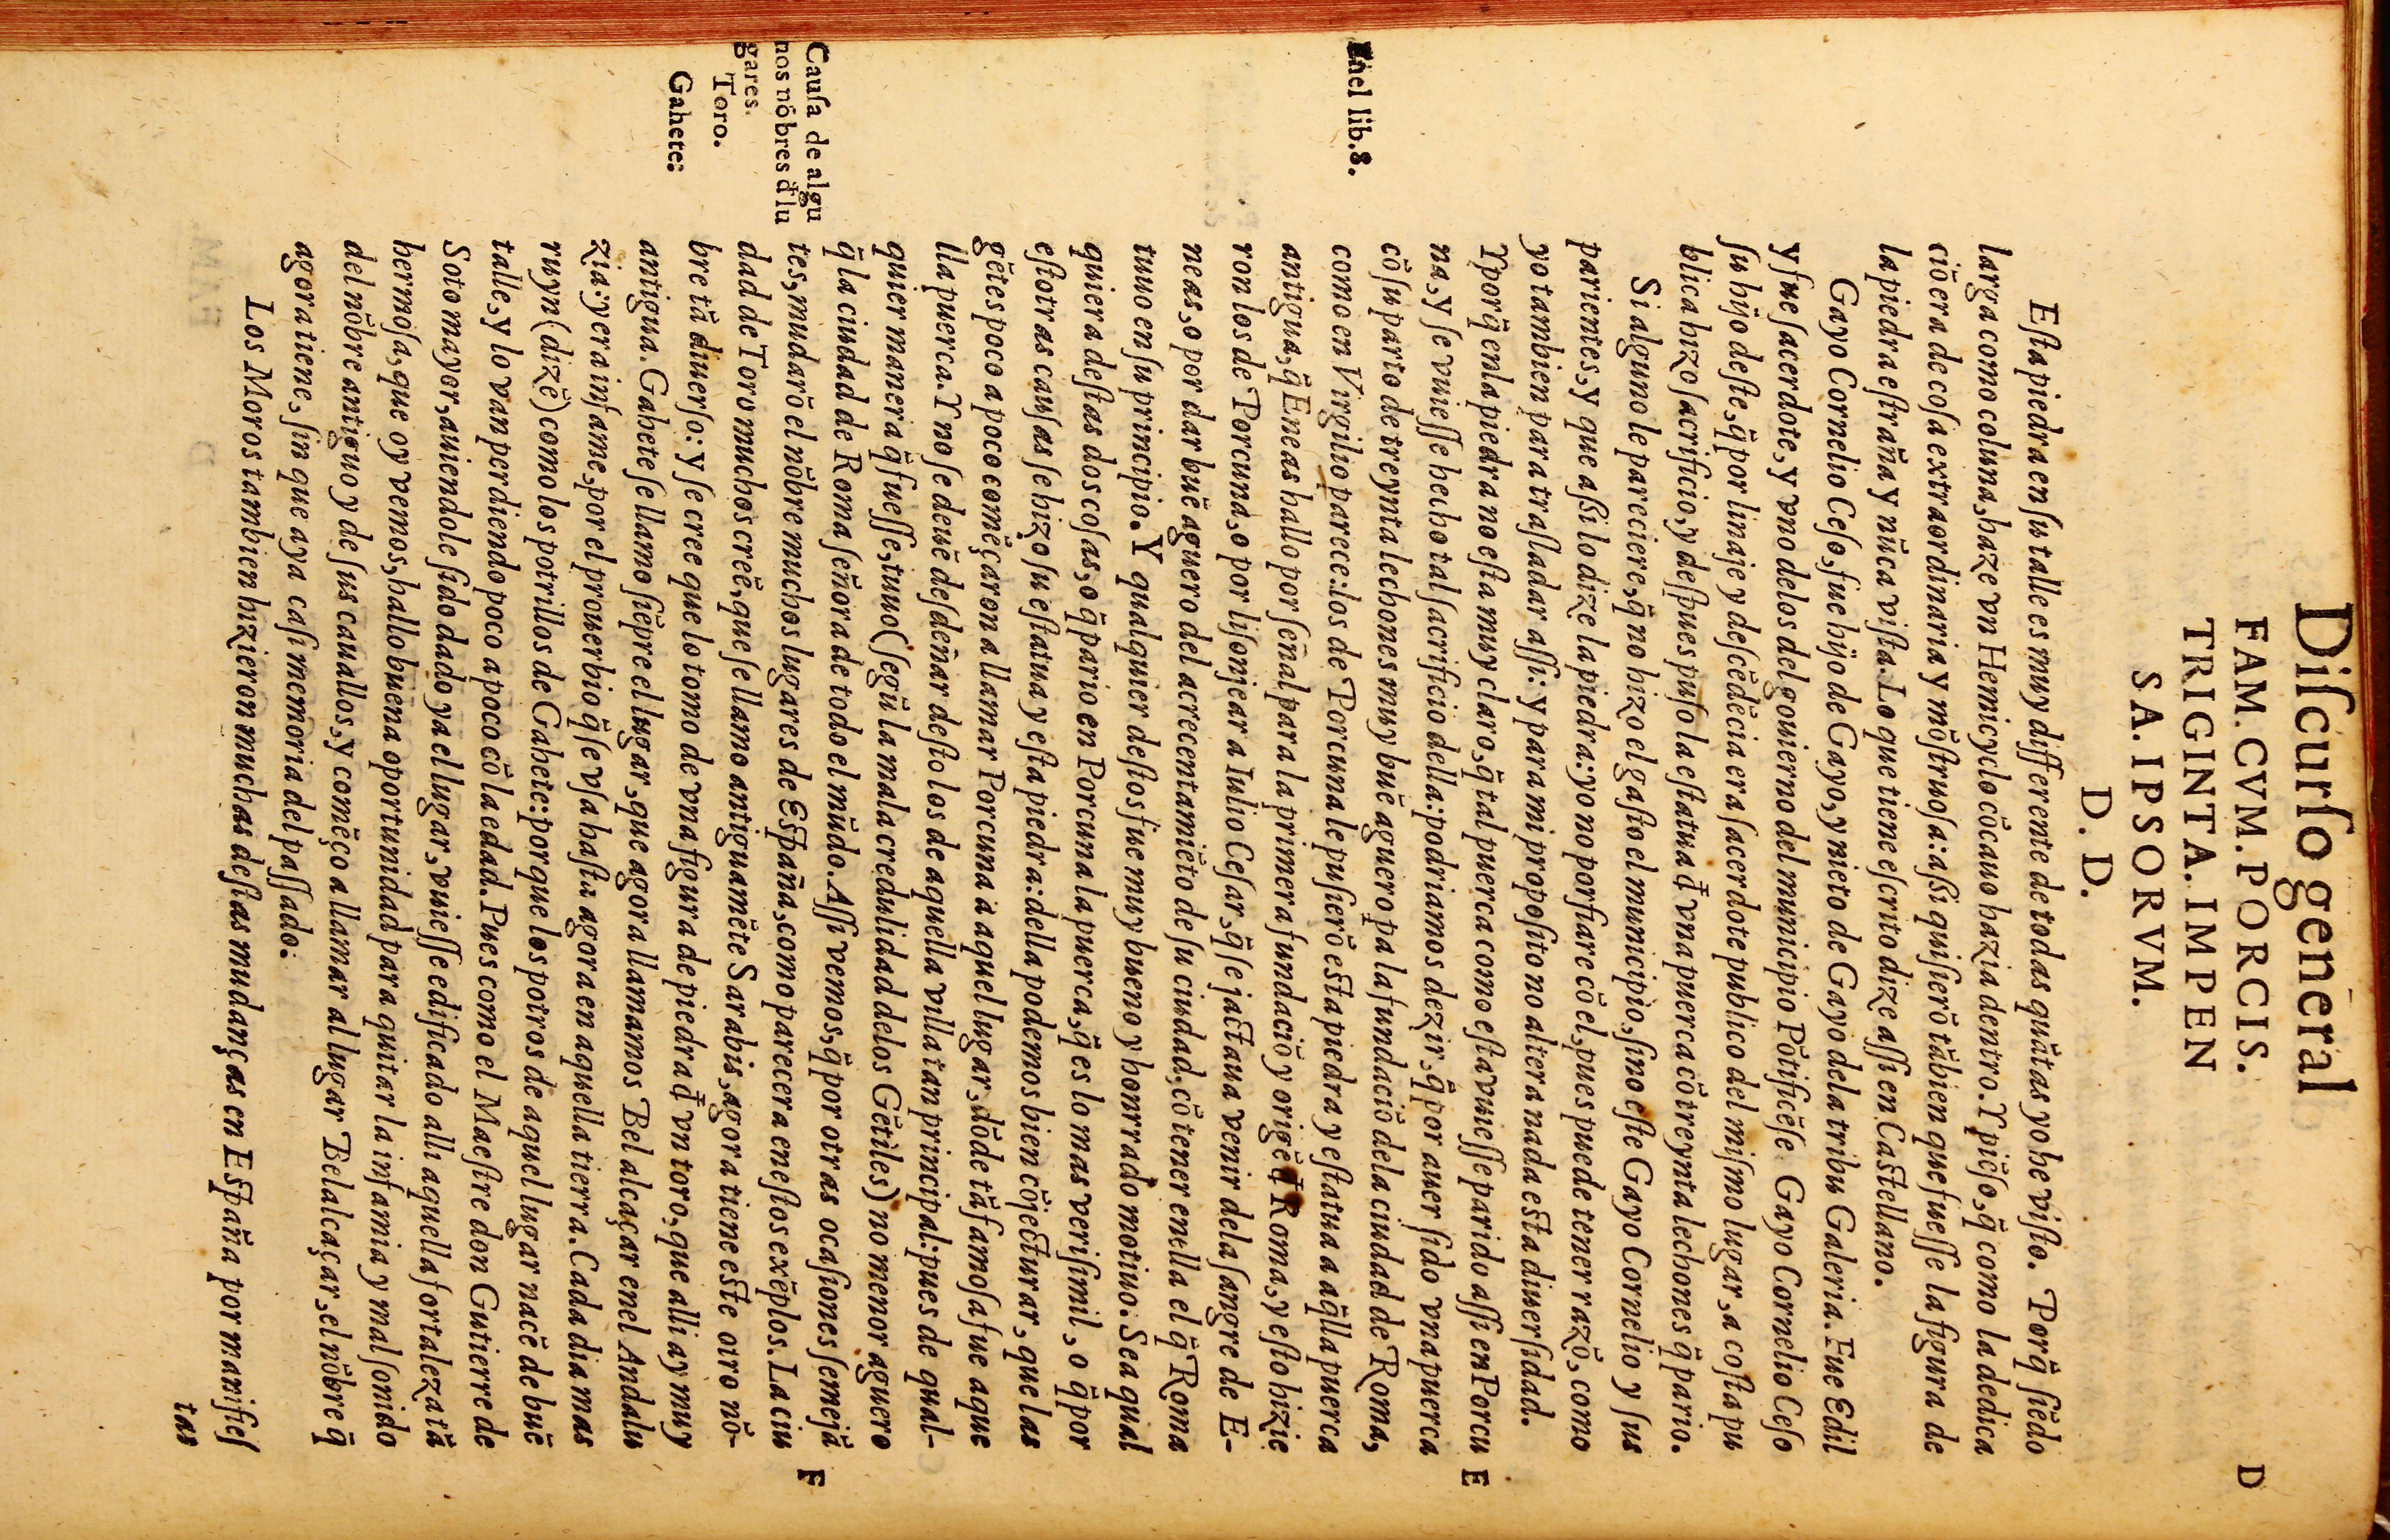 Diſcurſo general
FAM. CVM. PORCIS.
TRIGINTA. IMPEN
SA. IPSORVM.
D. D.
D
Eſta piedra en ſu talle es muy differente de todas quãtas yo he viſto. Porq̃ ſiẽdo
larga como coluna, haze vn Hemicyclo cõcauo hazia dentro. Y piẽſo, q̃ como la dedica
ciõ era de coſa extraordinaria y mõſtruoſa: aſsi quiſierõ tãbien que fueſſe la figura de
la piedra eſtraña y nũca viſta. Lo que tiene eſcrito dize aſſi en Caſtellano.
Gayo Cornelio Ceſo, fue hijo de Gayo, y nieto de Gayo dela tribu Galeria. Fue Edil
y fue ſacerdote, y vno delos del gouierno del municipio Põtificẽſe Gayo Cornelio Ceſo
ſu hijo deſte, q̃ por linaje y deſcẽdẽcia era ſacerdote publico del miſmo lugar, a coſta pu
blica hizo ſacrificio, y deſpues puſo la eſtatua đ vna puerca cõ treynta lechones q̃ pario.
Si alguno le pareciere, q̃ no hizo el gaſto el municipio, ſino eſte Gayo Cornelio y ſus
parientes, y que aſsi lo dize la piedra: yo no porfiare cõ el, pues puede tener razõ, como
yo tambien para traſladar aſſi: y para mi propoſito no altera nada eſta diuerſidad.
Y porq̃ en la piedra no eſta muy claro, q̃ tal puerca como eſta vuieſſe parido aſſi en Porcu
na, y ſe vuieſſe hecho tal ſacrificio della: podriamos dezir, q̃ por auer ſido vna puerca
E
cõ ſu parto de treynta lechones muy buẽ aguero pa la fundaciõ dela ciudad de Roma,
Enel lib. 8.
como en Virgilio parece: los de Porcuna le puſierõ eſta piedra y eſtatua a aq̃lla puerca
antigua, q̃ Eneas hallo por ſeñal para la primera fundaciõ y origẽ đ Roma, y eſto hizie
ron los de Porcuna, o por liſonjear a Iulio Ceſar, q̃ ſe jactaua venir dela ſangre de E-
neas, o por dar buẽ aguero del acrecentamiẽto de ſu ciudad, cõ tener en ella el q̃ Roma
tuuo en ſu principio. Y qualquier deſtos fue muy bueno y honrrado motiuo. Sea qual
quiera deſtas dos coſas, o q̃ pario en Porcuna la puerca, q̃ es lo mas veriſimil, o q̃ por
eſtotras cauſas ſe hizo ſu eſtatua y eſta piedra: della podemos bien cõjecturar, que las
gẽtes poco a poco comẽçaron a llamar Porcuna a aquel lugar, dõde tã famoſa fue aque
lla puerca. Y no ſe deuẽ deſdeñar deſto los de aquella villa tan principal: pues de qual-
quier manera q̃ fueſſe, tuuo (ſegũ la mala credulidad delos Gẽtiles) no menor aguero
q̃ la ciudad de Roma ſeñora de todo el mũdo. Aſſi vemos, q̃ por otras ocaſiones ſemejã
F
Cauſa de algu
nos nõbres đ lu
gares.
Toro.
Gahete:
tes, mudarõ el nõbre muchos lugares de Eſpaña, como parecera en eſtos exẽplos. La ciu
dad de Toro muchos creẽ, que ſe llamo antiguamẽte Sarabis, agora tiene eſte otro nõ-
bre tã diuerſo: y ſe cree que lo tomo de vna figura de piedra đ vn toro, que alli ay muy
antigua. Gahete ſe llamo ſiẽpre el lugar, que agora llamamos Belalcaçar enel Andalu
zia: y era infame, por el prouerbio q̃ ſe vſa haſta agora en aquella tierra. Cada dia mas
ruyn (dizẽ) como los potrillos de Gahete: porque los potros de aquel lugar nacẽ de buẽ
talle, y lo van perdiendo poco a poco cõ la edad. Pues como el Maeſtre don Gutierre de
Soto mayor, auiendole ſido dado ya el lugar, vuieſſe edificado alli aquella fortaleza tã
hermoſa, que oy vemos, hallo buena oportunidad para quitar la infamia y mal ſonido
del nõbre antiguo y de ſus cauallos, y comẽço a llamar al lugar Belalcaçar, el nõbre q̃
agora tiene, ſin que aya caſi memoria del paſſado.
Los Moros tambien hizieron muchas deſtas mudanças en Eſpaña por manifieſ
tas